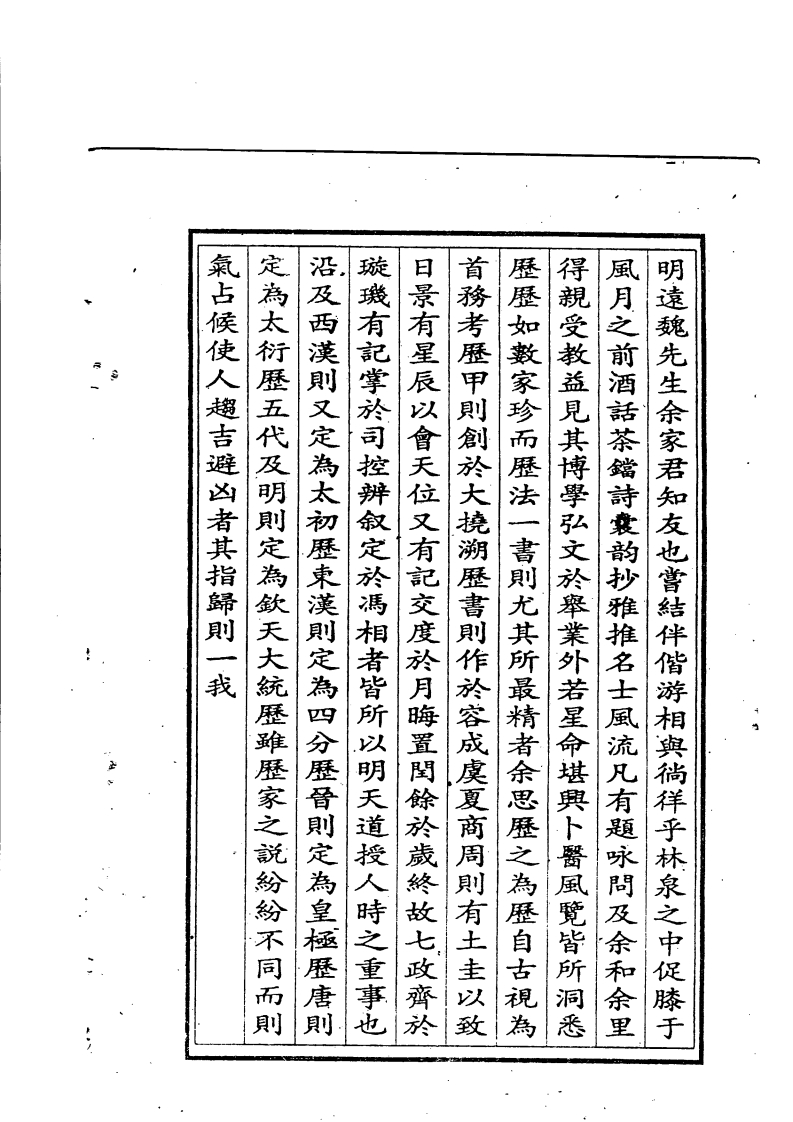 明遠魏先生余家君知友也嘗結伴偕游相與徜徉乎林泉之中促膝于
風月之前酒話茶鐺詩囊韵抄雅推名士風流凡有題咏問及余和余里
得親受教益見其博學弘文於舉業外若星命堪輿卜醫風覽皆所洞悉
歷歷如數家珍而歷法一書則尤其所最精者余思歷之為歷自古視為
首務考歷甲則創於大撓溯歷書則作於容成虞夏商周則有土圭以致
日景有星辰以會天位又有記交度於月晦置閏餘於歲終故七政齊於
璇璣有記掌於司控辨叙定於馮相者皆所以明天道授人時之重事也
沿及西漢則又定為太初歷東漢則定為四分歷晉則定為皇極歷唐則
定為太衍歷五代及明則定為欽天大統歷雖歷家之說紛紛不同而則
氣占候使人趨吉避凶者其指歸則一我